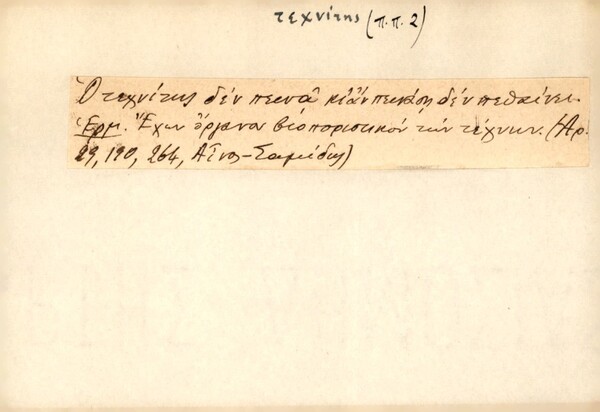 τεχνίτης (π.π. 2)
Ὁ τεχνίτης δέν πεινᾷ κι ἄν πεινάσῃ δέν πεθαίνει.
Ἑρμ. Ἔχων ὄργανον βιοποριστικόν τήν τέχνην. (Ἀρ.
29, 190, 264, Αἶνος-Σαμίδης)